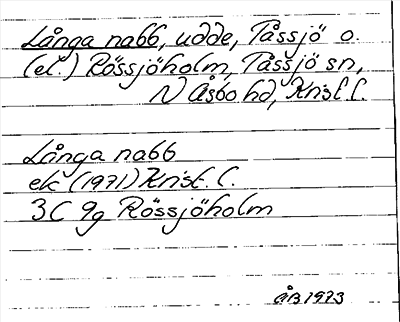 Långa nabb, udde, Tåssjö o.
(el.) Rössjöholm, Tåssjö sn,
N Åsbo hd, Krist. l.
Långa nabb
ek (1971) Krist. l.
3C 9g Rössjöholm
åB 1973